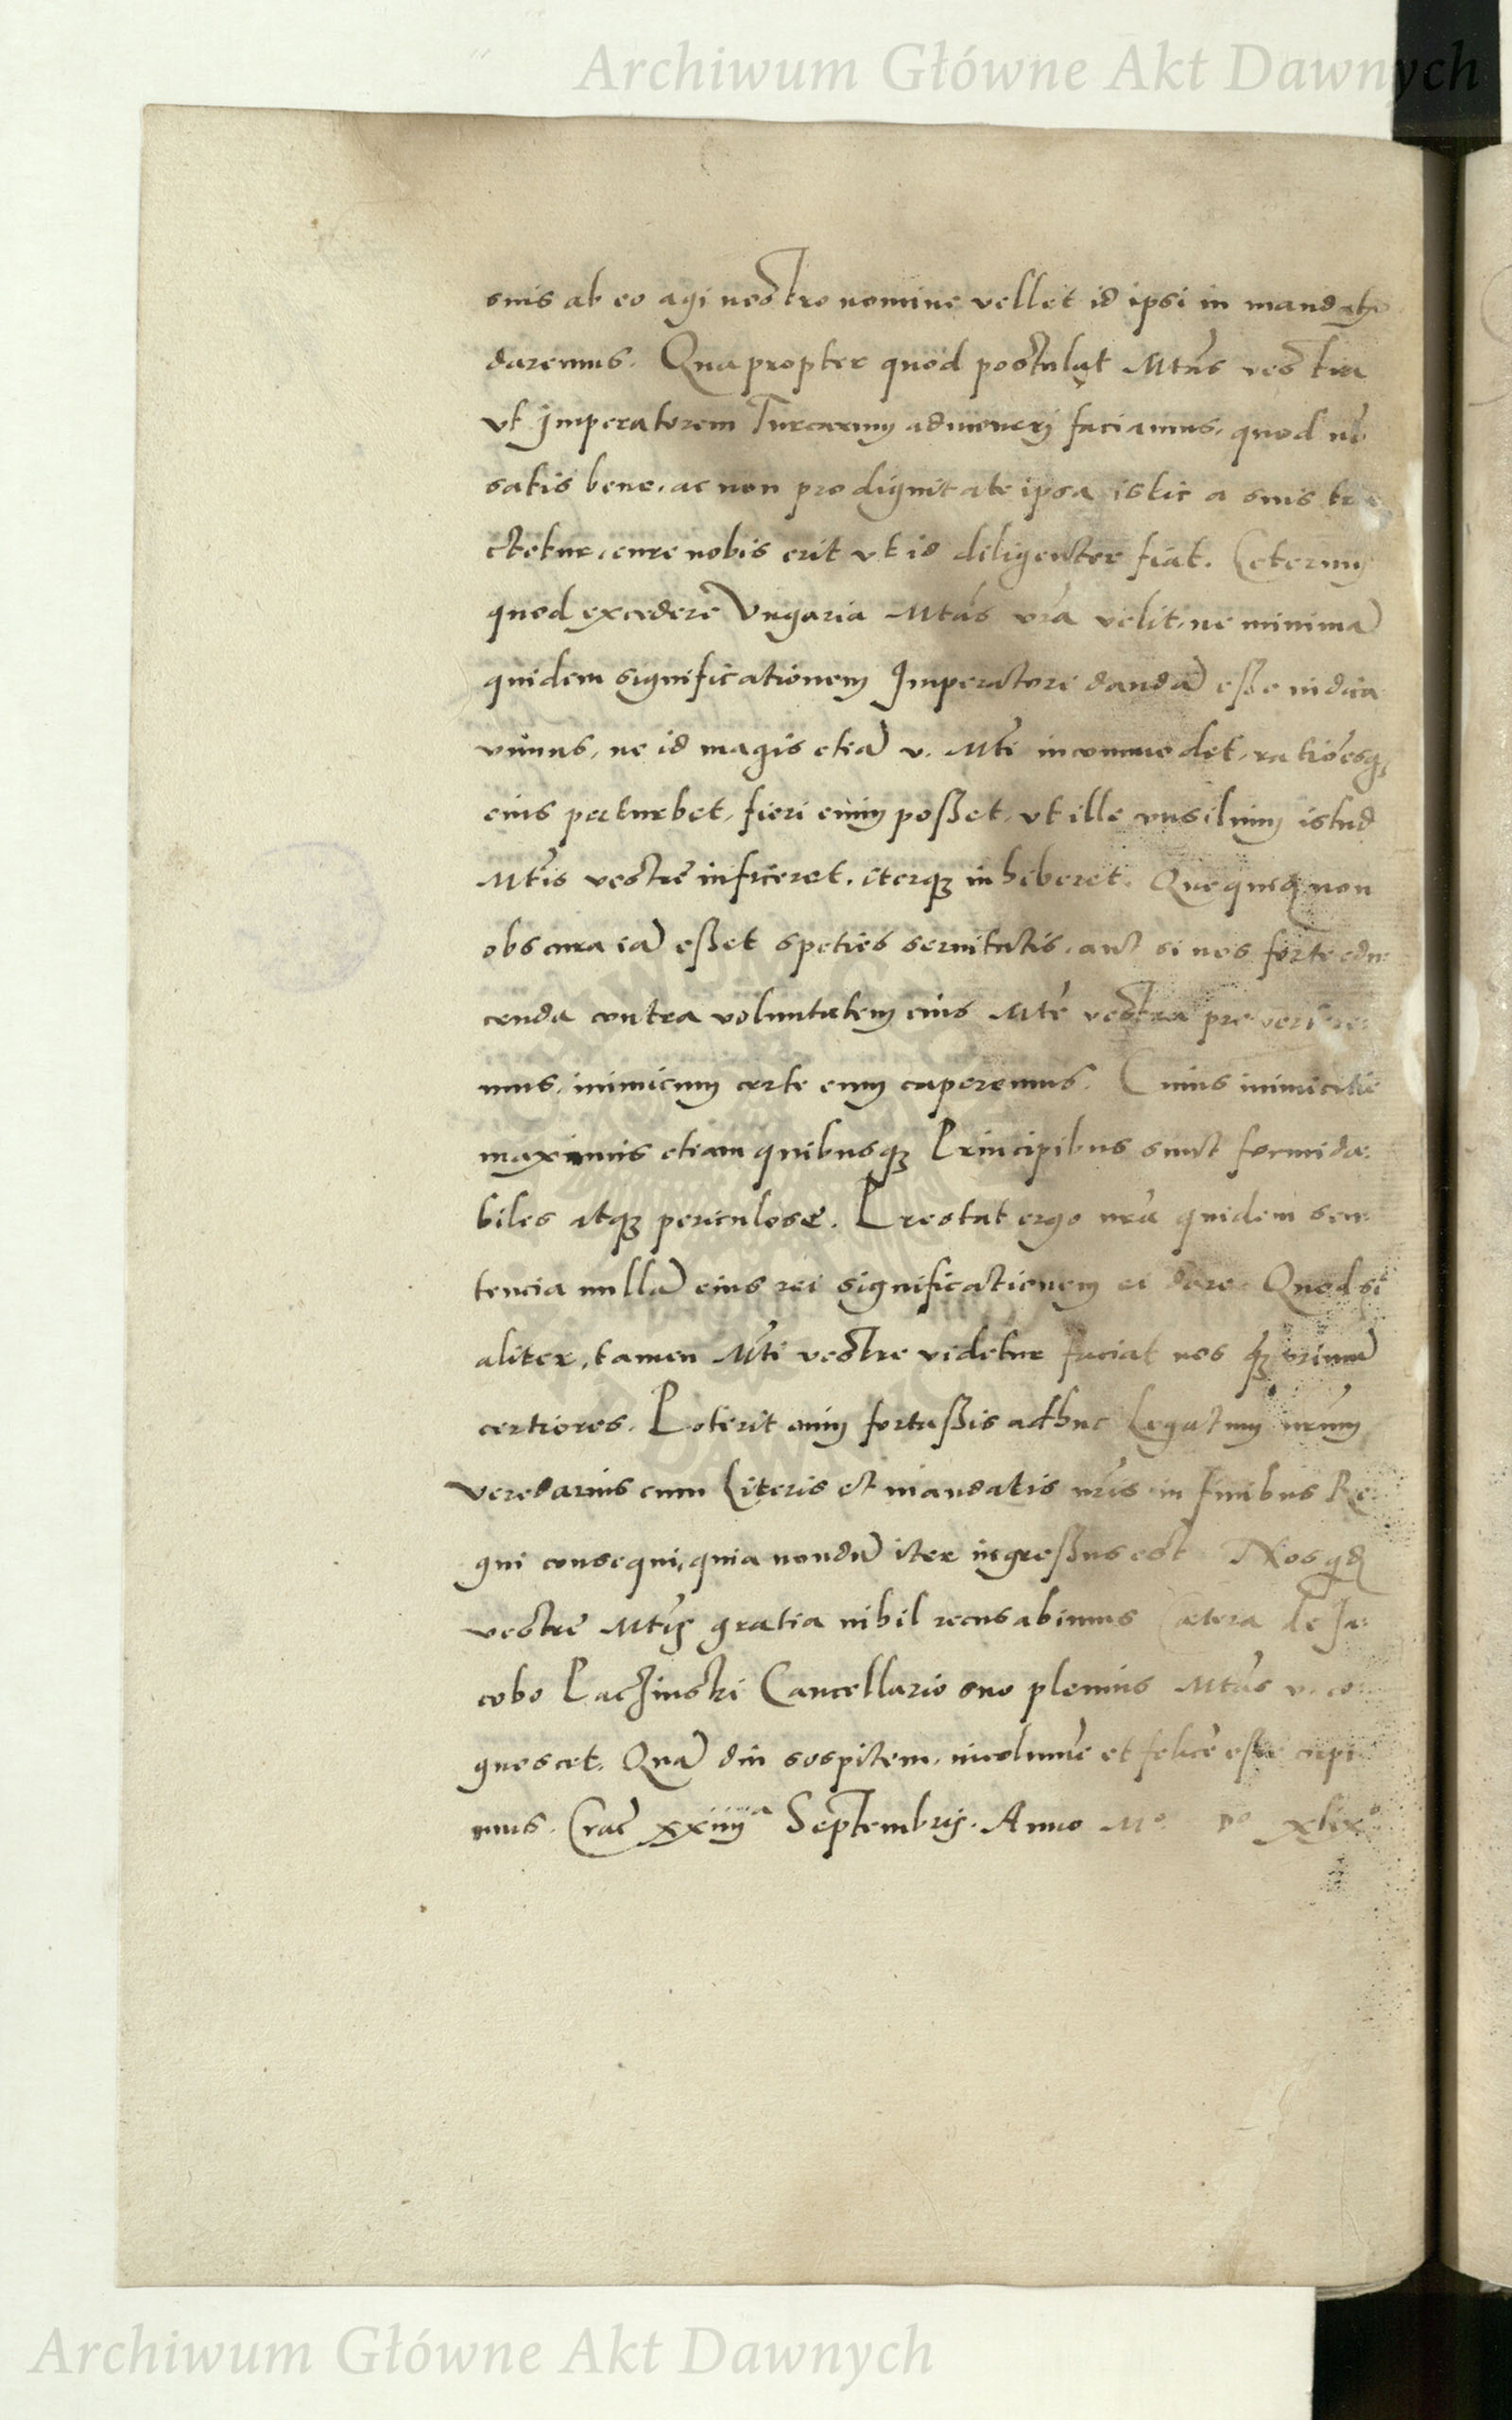 Archiwum Główne Akt Dawnych
suis ab eo agi nostro nomine vellet id ipsi in mandatis
daremus. Quapropter quod postulat Mtas vestra
vt Imperatorem Turcarum admoneri faciamus, quod
satis bene, ac non pro dignitate ipsa istic a suis tra
ctetur, cure nobis erit vt id diligenter fiat. Ceterum
quod excedere Vngaria Mtas vra velit, ne minima
quidem significationem Imperatore danda esse iudica
vimus, ne id magis etia v. Mti incommodet, rationesq
eius perturbet, fieri enim posset, vt ille consilium istud
Mtis vestre inficeret, iterque inhiberet. Que non
obscura ia esset speties seruitutis, aut si nos forte edu
cenda contra voluntatem eius Mte vestra
mus, inimicum certe eum caperemus. Cuius inimicitie
maximis etiam quibusque Principibus sunt formida:
biles atque periculose. Prestat ergo nra quidem sen
tencia nulla eius rei significationem ei dare. Quod si
aliter, tamen Mti vestre videtur faciat nos q primu
certiores. Poterit enim fortassis adhuc Legatum nrum
veredarius cum Literis et mandatis nris in finibus Re
gni consequi, quia nondu iter ingressus est. Nos
vestre Mtis gratia nihil recusabimus Cætera de Ja:
cobo Laczinski Cancellario suo plenius Mtas v. co
gnoscet. Qua diu sospitem, incolume et felice esse cupi
mus. Crac xxiiij Septembris. Anno Mo Do xlixo
Archiwum Główne Akt Dawnych